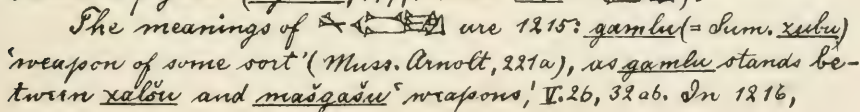 The meanings of are 1215: gamlu (= Sum. zubu)
'weapon of some sort' (Muss. Arnolt, 221a), as gamlu stands be-
tween xalṣu and mašgašu 'weapons,' V. 26, 32ab. In 1216,